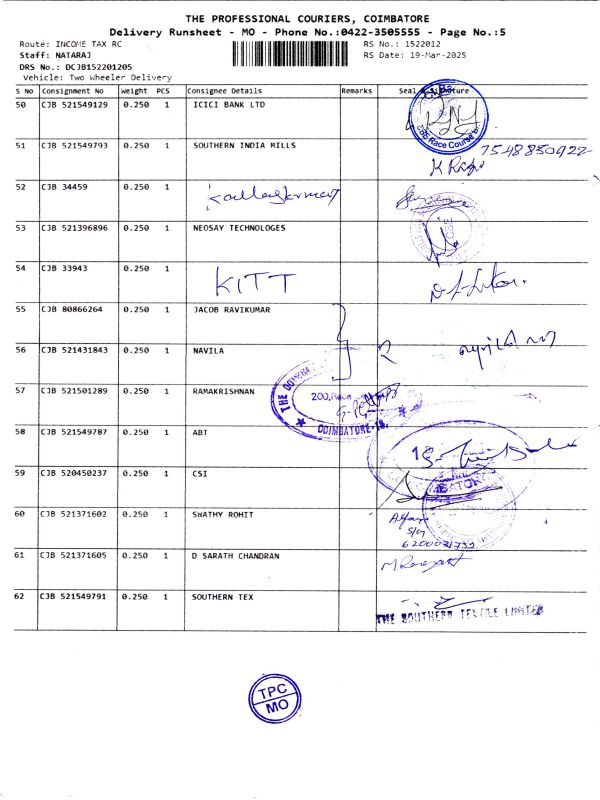 THE PROFESSIONAL COURIERS, COIMBATORE
Delivery Runsheet - MO - Phone No.:0422-3505555 - Page No.:5
Route: INCOME TAX RC RS No.: 1522012
Staff: NATARAJ RS Date: 19-Mar-2025
DRS No.: DCJB152201205
Vehicle: Two Wheeler Delivery
S No Consignment No Weight PCS Consignee Details Remarks Seal & Signature
50 CJB 521549129 0.250 1 ICICI BANK LTD
Race Course
51 CJB 521549793 0.250 1 SOUTHERN INDIA MILLS 7548850922
52 CJB 34459 0.250 1
53 CJB 521396896 0.250 1 NEOSAY TECHNOLOGES
54 CJB 33943 0.250 1 KITT
55 CJB 80866264 0.250 1 JACOB RAVIKUMAR
56 CJB 521431843 0.250 1 NAVILA
57 CJB 521501289 0.250 1 RAMAKRISHNAN
200, Race
COIMBATORE-18.
58 CJB 521549787 0.250 1 ABT
59 CJB 520450237 0.250 1 CSI
60 CJB 521371602 0.250 1 SWATHY ROHIT
61 CJB 521371605 0.250 1 D SARATH CHANDRAN
62 CJB 521549791 0.250 1 SOUTHERN TEX
THE SOUTHERN TEXTILE LIMITED
TPC
MO